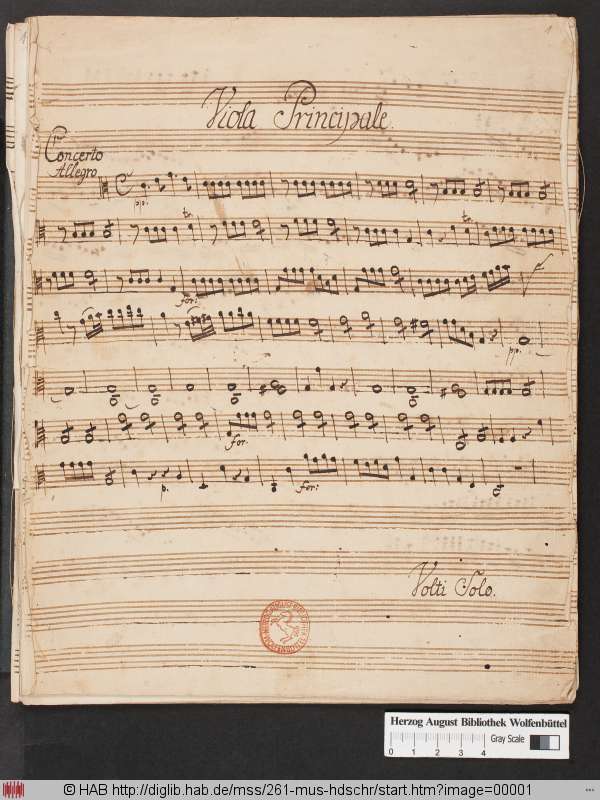 1
Viola Principale.
Concerto
Allegro
pp.
tr.
tr.
for:
pp.
for.
p.
for:
Volti Solo.
Herzog August Bibliothek Wolfenbüttel
0 1 2 3 4
Gray Scale
© HAB http://diglib.hab.de/mss/261-mus-hdschr/start.htm?image=00001